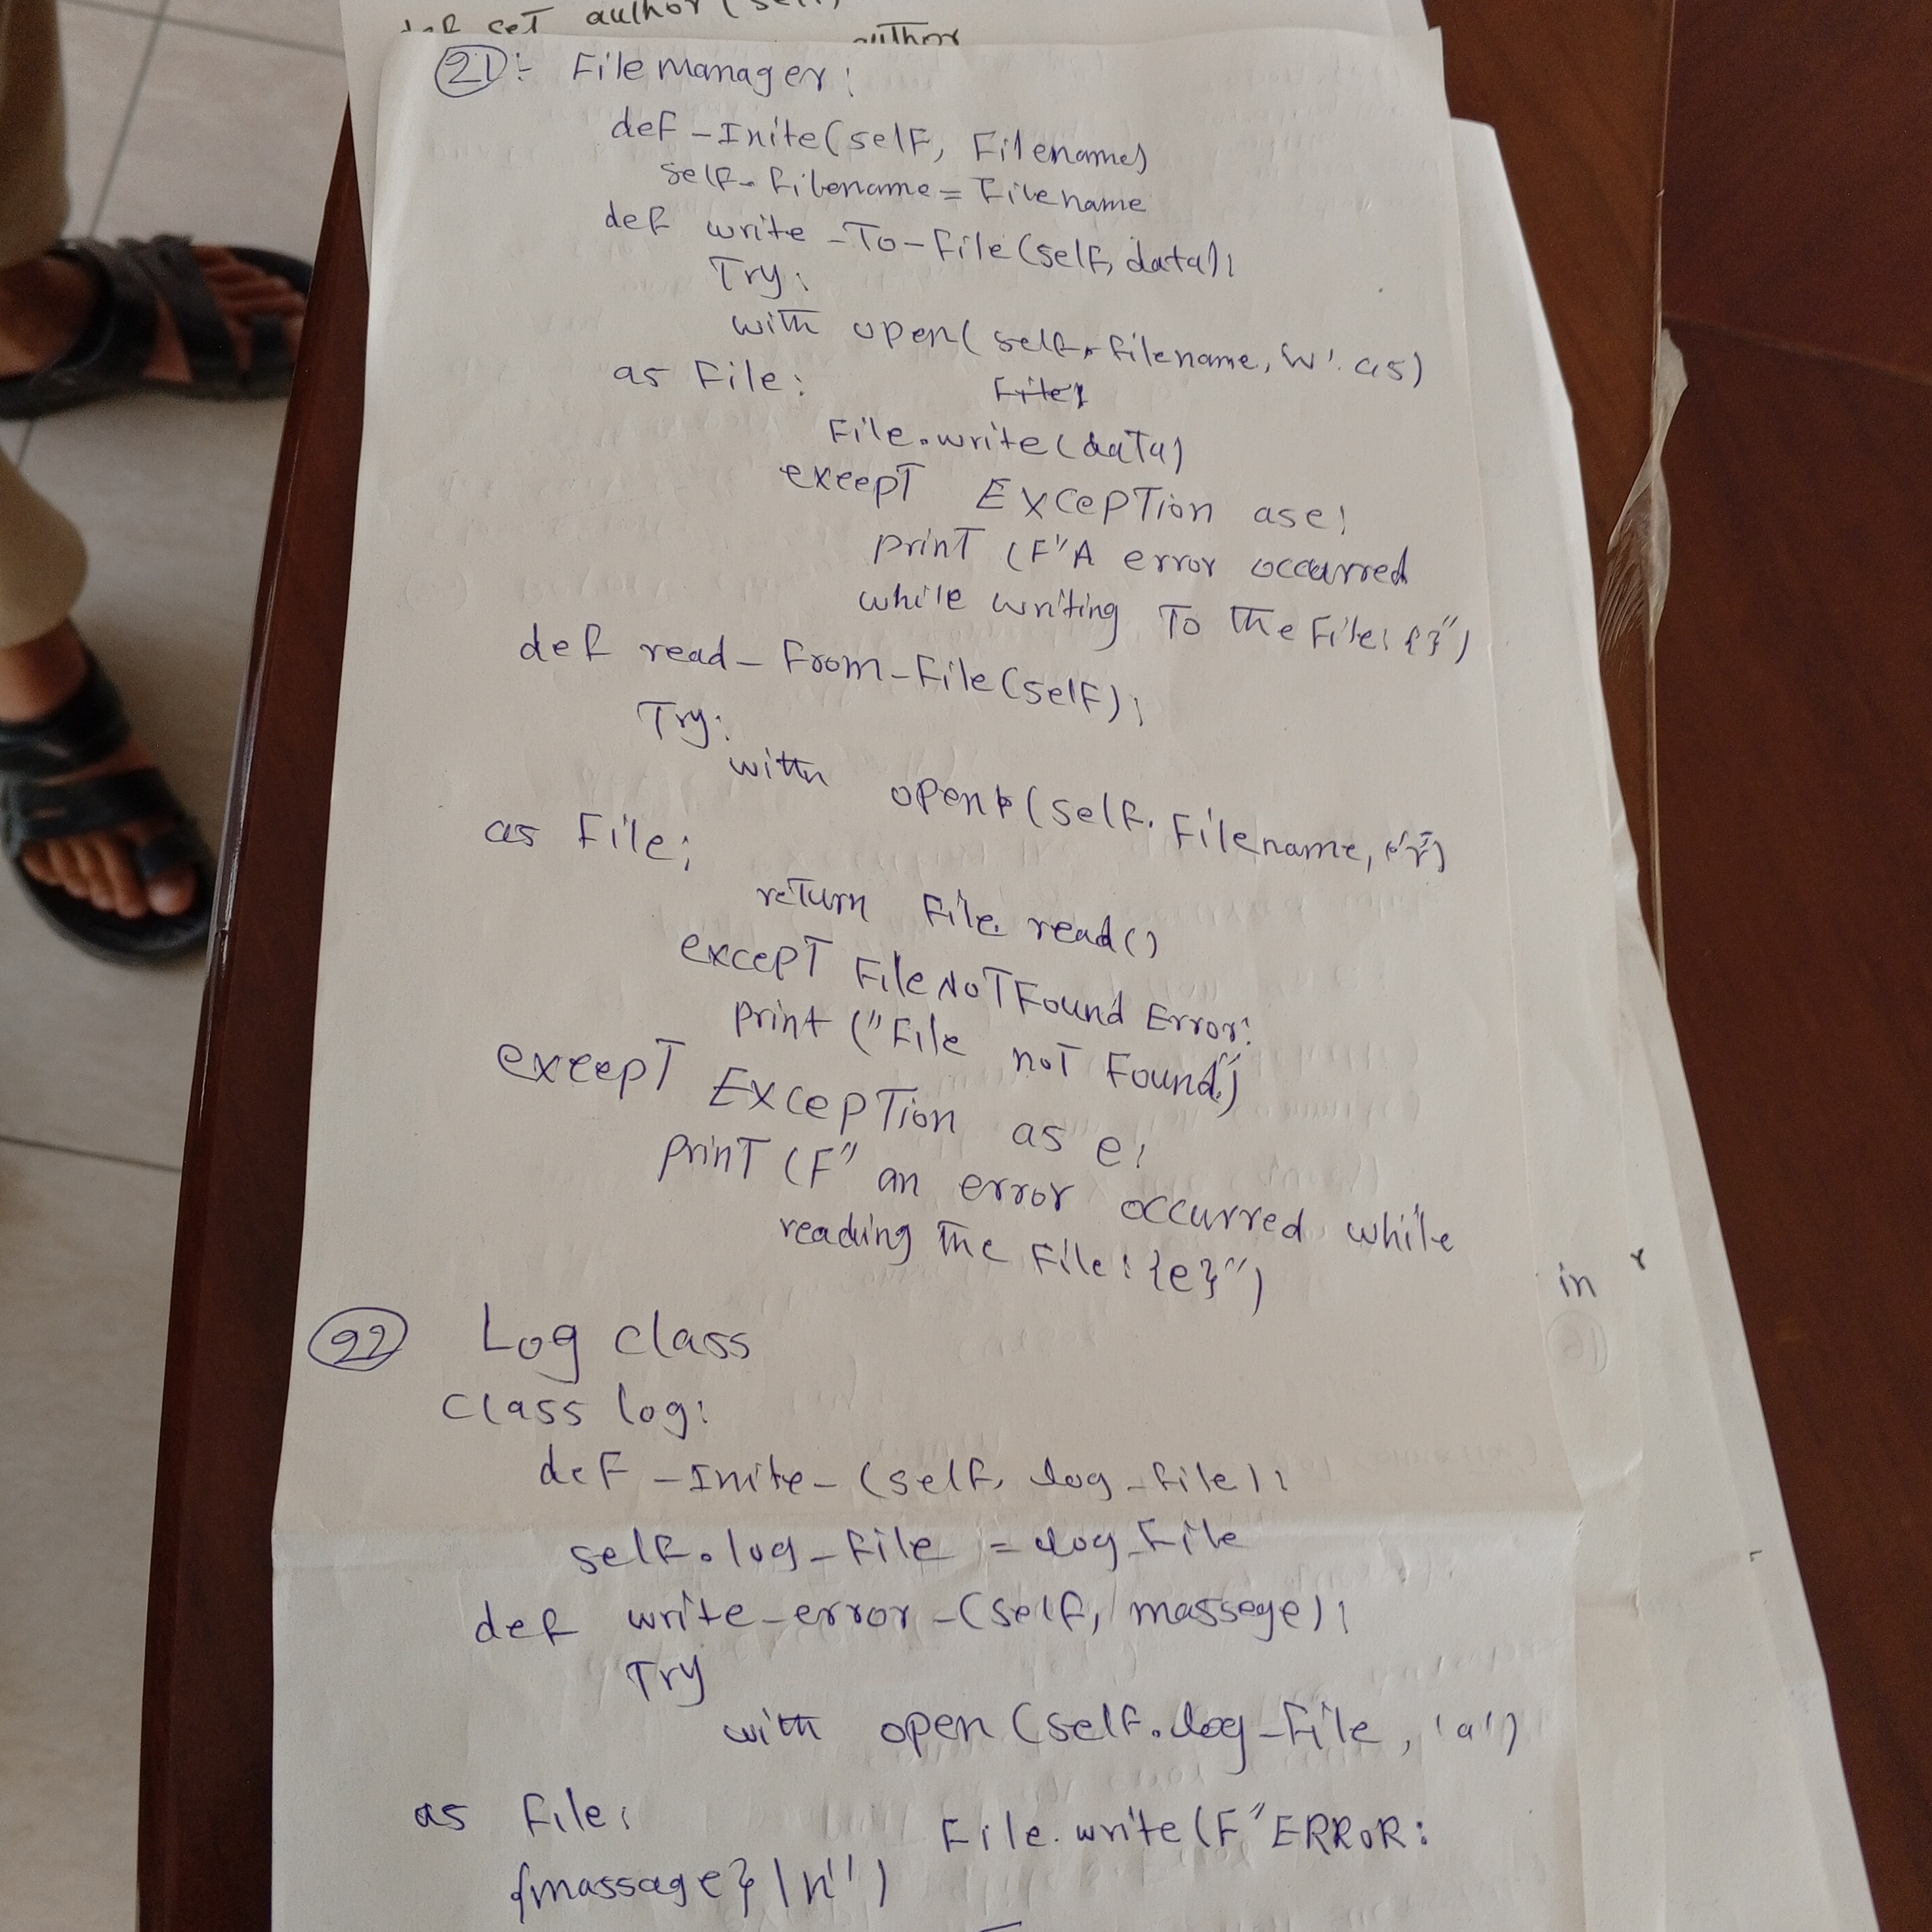 def set author (self)
author
21:- File manager:
def -Inite(self, Filename)
self. filename = Filename
def write -To-file(self, data):
Try:
with open( self. filename, 'w'. as)
as File:
File.write(data)
except Exception as e:
print (F"A error occurred
while writing To the File: {}")
def read- From-File(self):
Try:
with open(self. Filename, 'r')
as File:
return File. read()
except FileNotFound Error:
print ("File not Found.")
except Exception as e:
print (F" an error occurred while
reading the File: {e}")
22 Log class
class log:
def -Inite- (self, log-file):
self.log-file = log-File
def write-error-(self, massege):
Try
with open (self.log-File, 'a')
as file:
File. write(F"ERROR:
{massage} \n")
in
r